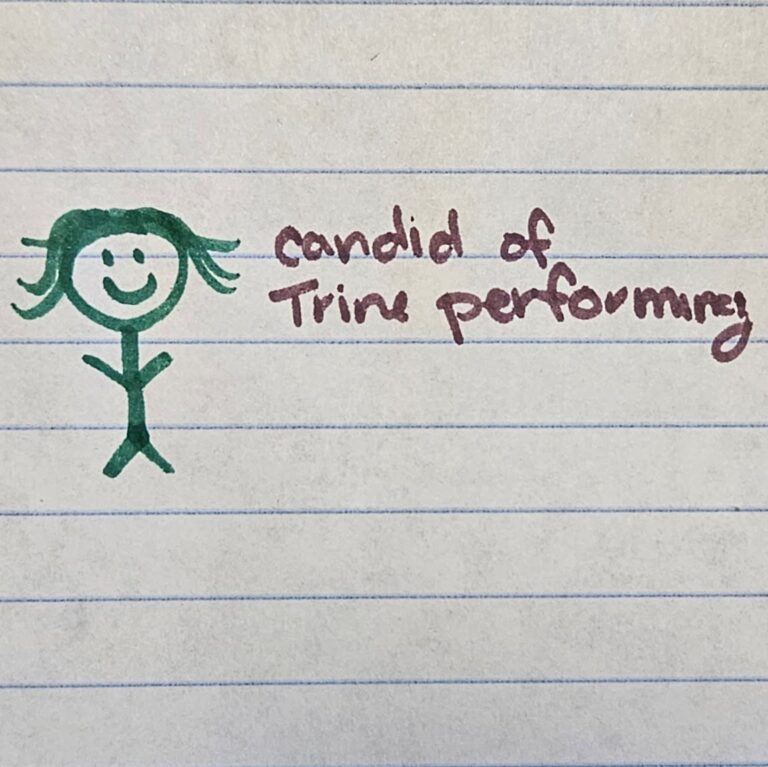 candid of
Trine performing